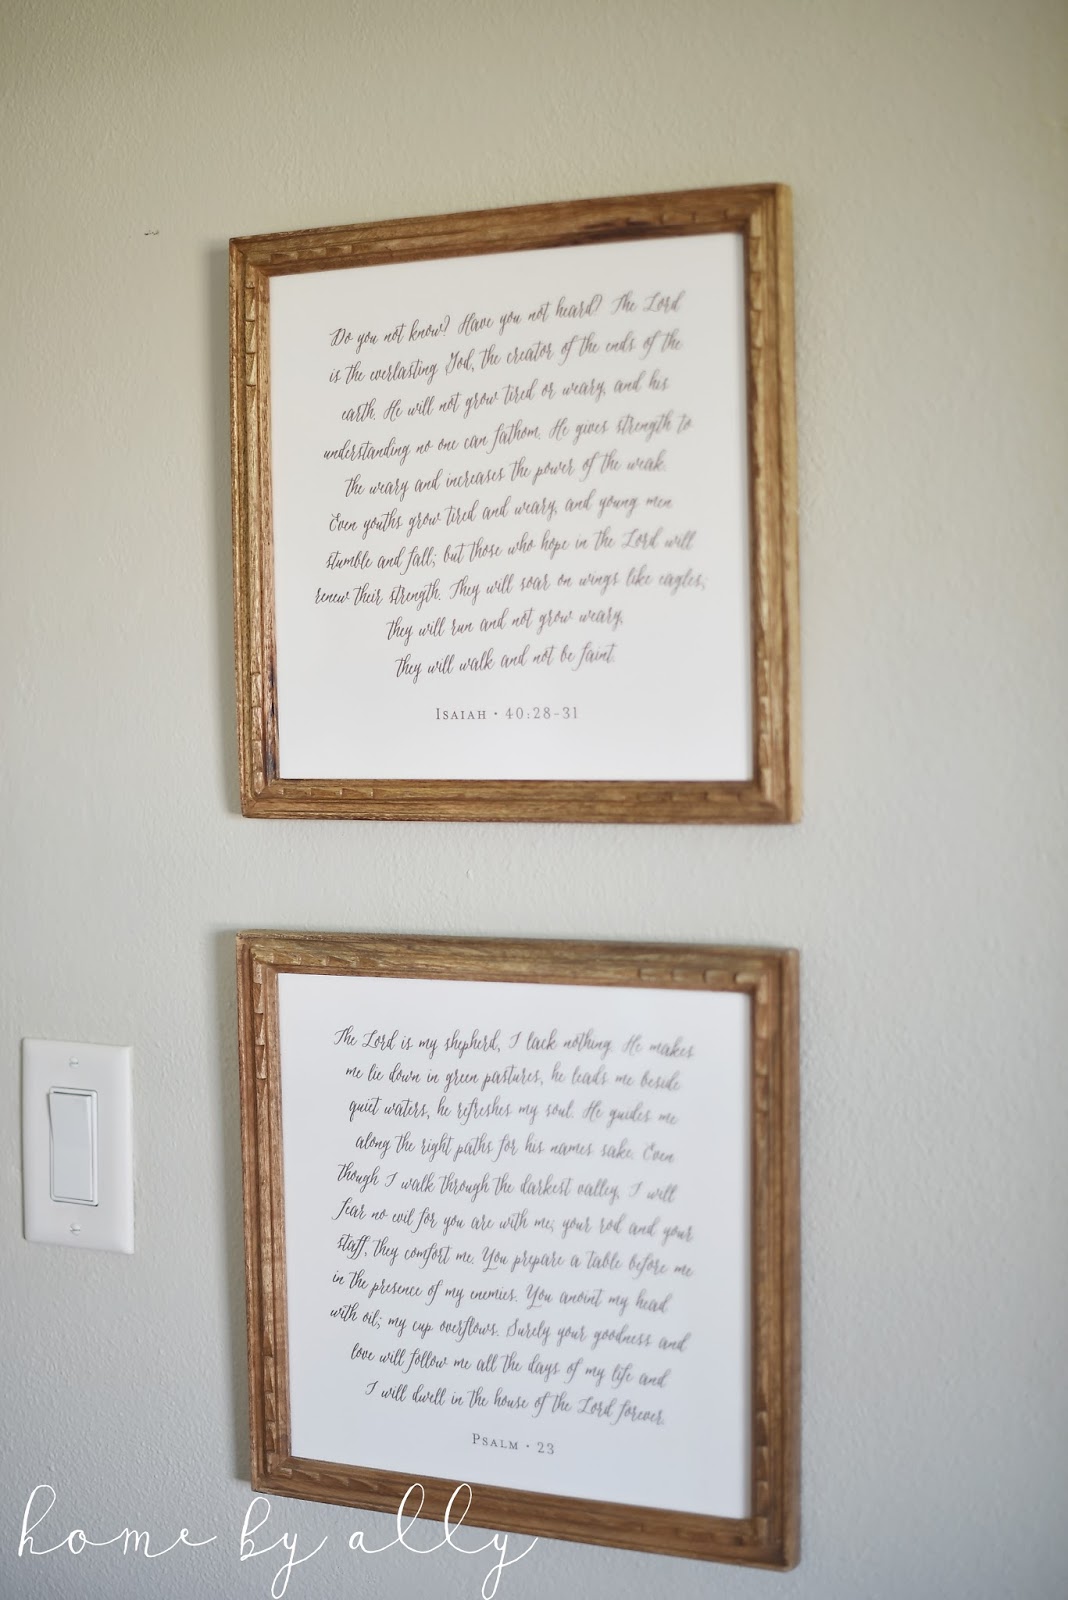 Do you not know? Have you not heard? The Lord
is the everlasting God, the creator of the ends of the
earth. He will not grow tired or weary, and his
understanding no one can fathom. He gives strength to
the weary and increases the power of the weak.
Even youths grow tired and weary, and young men
stumble and fall; but those who hope in the Lord will
renew their strength. They will soar on wings like eagles;
they will run and not grow weary,
they will walk and not be faint.
ISAIAH • 40:28-31
The Lord is my shepherd, I lack nothing. He makes
me lie down in green pastures, he leads me beside
quiet waters, he refreshes my soul. He guides me
along the right paths for his names sake. Even
though I walk through the darkest valley, I will
fear no evil for you are with me; your rod and your
staff, they comfort me. You prepare a table before me
in the presence of my enemies. You anoint my head
with oil; my cup overflows. Surely your goodness and
love will follow me all the days of my life and
I will dwell in the house of the Lord forever.
PSALM • 23
home by ally